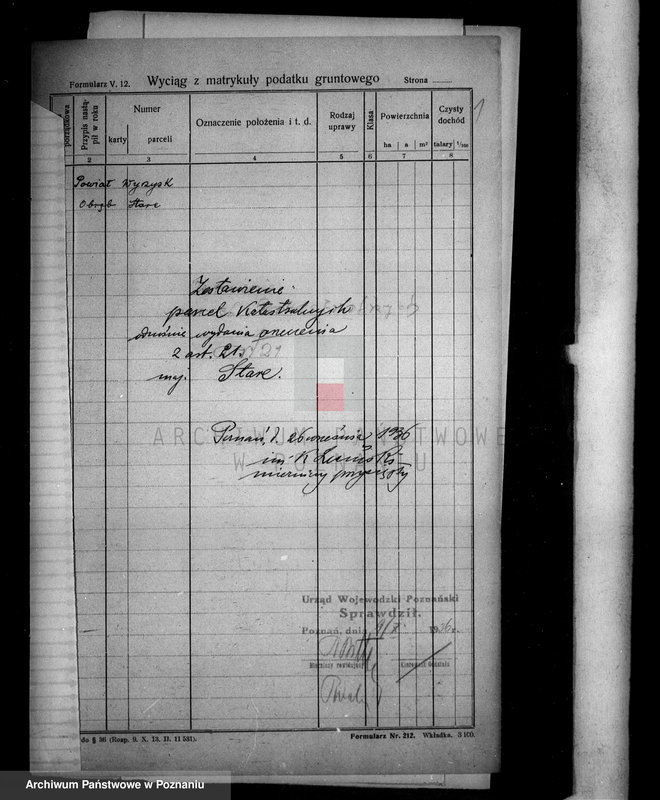 Formularz V. 12. Wyciąg z matrykuły podatku gruntowego Strona
1
porządkowa
Przypis nastąpił w roku
Numer
karty parceli
Oznaczenie położenia i t. d.
Rodzaj uprawy
Klasa
Powierzchnia
ha a m²
Czysty dochód
talary 1/100
2 3 4 5 6 7 8
Powiat Wyrzysk
Obręb Stare
Zestawienie
parcel Katastralnych
odnośnie wydania orzeczenia
z art. 21
maj. Stare.
ARCHIWUM PAŃSTWOWE
W POZNANIU
Poznań, d. 26 września 1936
inż. K
mierniczy przysięgły
Urząd Wojewódzki Poznański
Sprawdził.
Poznań, dnia 9/X 1936 r.
Mierniczy rewizyjny Kierownik Oddziału
do § 36 (Rozp. 9. X. 13. II. 11 531). Formularz Nr. 212. Wkładka. 3 100.
Archiwum Państwowe w Poznaniu